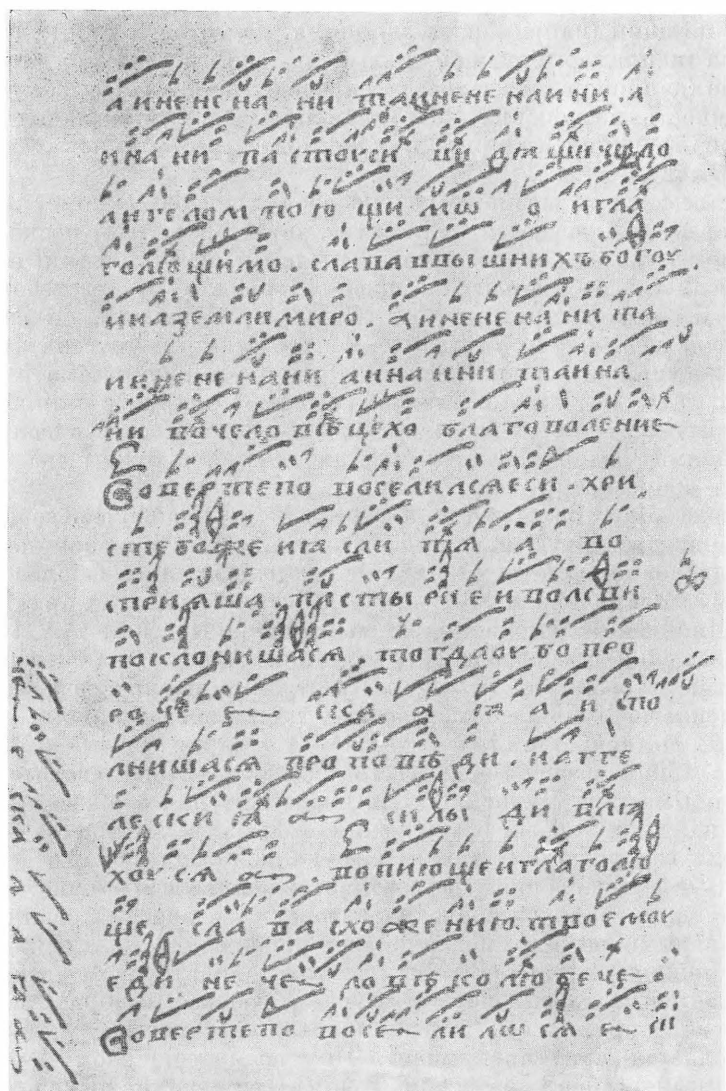 аиненє на ни таиненe наини . а
ина ни пастоуси ши дѧ ши чюдо
ангелом пою щи мѡ о и гла
голющимо . слава ввышнихъ богоу
и на земли миро . аиненена ни та
ииненe нани аина ини таина
ни во человѣцехо благоволение
Во вертепо воселилсѧ еси . хри
сте боже ꙗсли тѧ а во
сприѧша . пастырие и волсви
поклонишасѧ тогда оубо про
ро че ска а ꙗ а и спо
лнишасѧ проповѣди . и агге
лески ꙗ силы диви
хоу сѧ . вопиюще и глаголю
ще сла ва схожению твоемоу
еди не че ловѣколюбече
Во вертепо восе ли лѡ сѧ е си